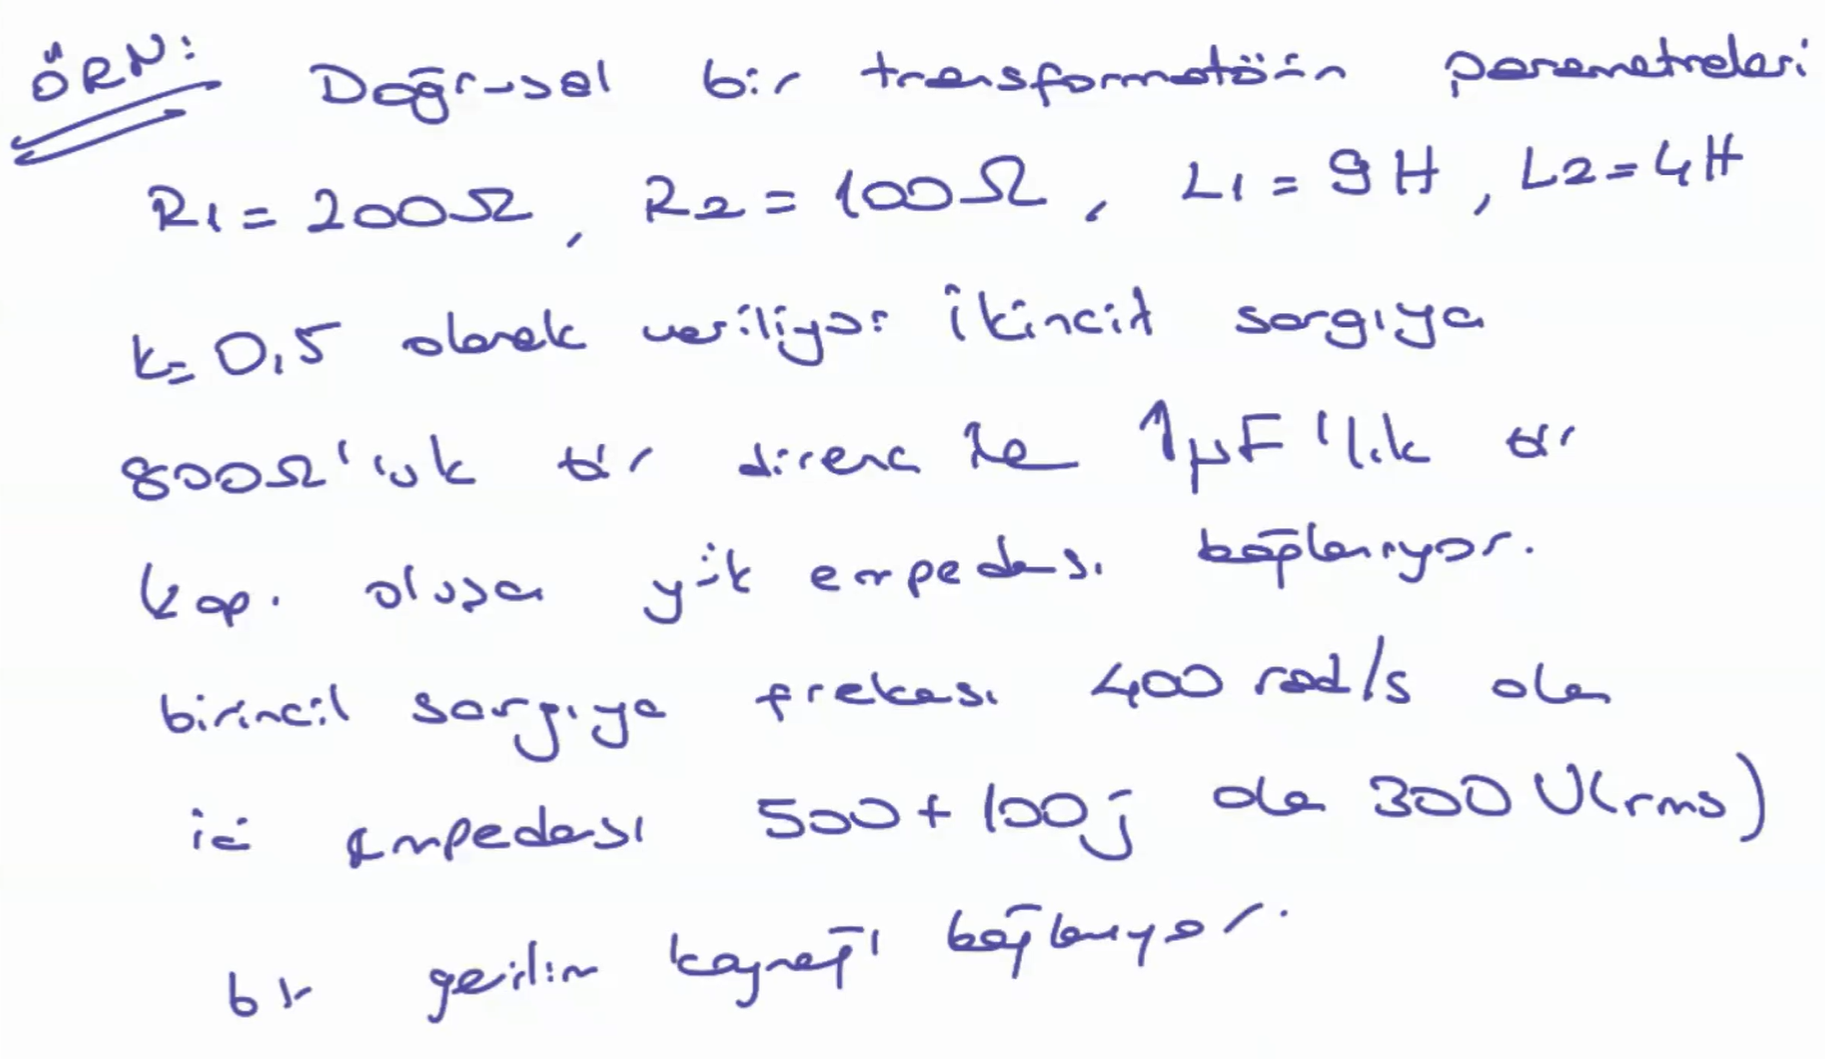 ÖRN: Doğrusal bir transformatörün parametreleri
R1 = 200Ω, R2 = 100Ω, L1 = 9H, L2 = 4H
k = 0,5 olarak veriliyor ikincil sargıya
800Ω'luk bir direnç ile 1μF'lik bir
kap. oluşan yük empedansı bağlanıyor.
birincil sargıya frekansı 400 rad/s olan
iç empedansı 500 + 100j olan 300 V(rms)
bir gerilim kaynağı bağlanıyor.